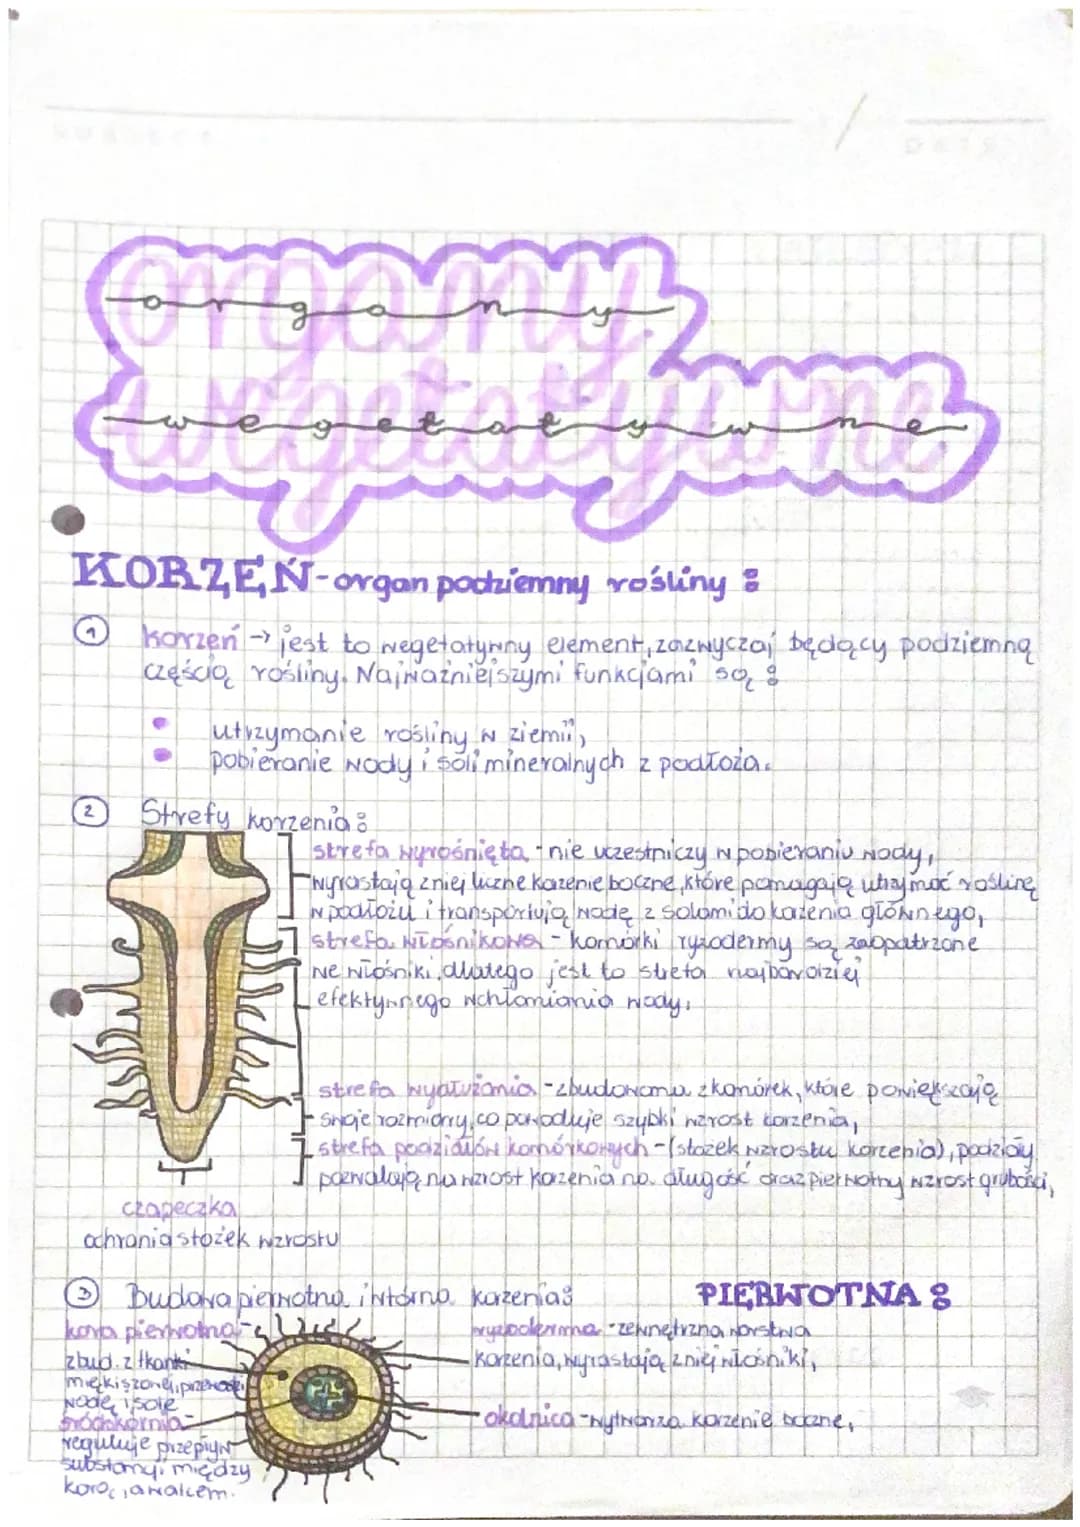 organy
wegetatywne
KORZEŃ-organ podziemny rośliny:
1 korzeń → jest to wegetatywny element, zazwyczaj będący podziemną
częścią rośliny. Najważniejszymi funkcjami są:
utrzymanie rośliny w ziemii,
pobieranie wody i soli mineralnych z podłoża.
2 Strefy korzenia:
strefa wyrośnięta - nie uczestniczy w pobieraniu wody,
wyrastają z niej liczne korzenie boczne, które pomagają utrzymać roślinę
w podłożu i transportują wodę z solami do korzenia głównego,
strefa włośnikowa - komórki ryzodermy są zaopatrzone
we włośniki, dlatego jest to strefa najbardziej
efektywnego wchłaniania wody,
strefa wydłużania - zbudowana z komórek, które powiększają
swoje rozmiary, co powoduje szybki wzrost korzenia,
strefa podziałów komórkowych - (stożek wzrostu korzenia), podziały
pozwalają na wzrost korzenia na długość oraz pierwotny wzrost grubości,
czapeczka
ochrania stożek wzrostu
3 Budowa pierwotna i wtórna korzenia:
PIERWOTNA:
kora pierwotna-
zbud. z tkanki
miękiszowej, przewodzi
wodę i sole
śródskórnia-
reguluje przepływ
substancji między
korą, a walcem.
ryzoderma - zewnętrzna warstwa
korzenia, wyrastają z niej włośniki,
okolnica - wytwarza korzenie boczne,